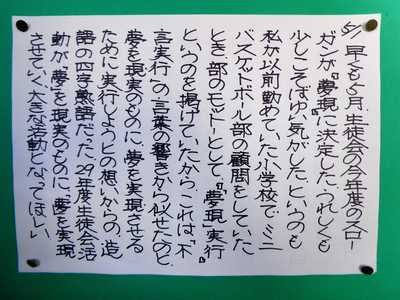 5/1 早くも5月。生徒会の今年度のスローガンが『夢現』に決定した。うれしくも
少しこそばゆい気がした。というのも
私が以前勤めていた小学校で、ミニ
バスケットボール部の顧問をしていた
とき、部のモットーとして、『『夢現』実行』
というのを掲げていたから。これは『不
言実行』の言葉の響きから似せたのと、
夢を実現のものに、夢を実現させる
ために実行しようとの想いからの、造
語の四字熟語だった。29年度生徒会活
動が『夢』を現実のものに、『夢』を実現
させていく、大きな活動となってほしい。